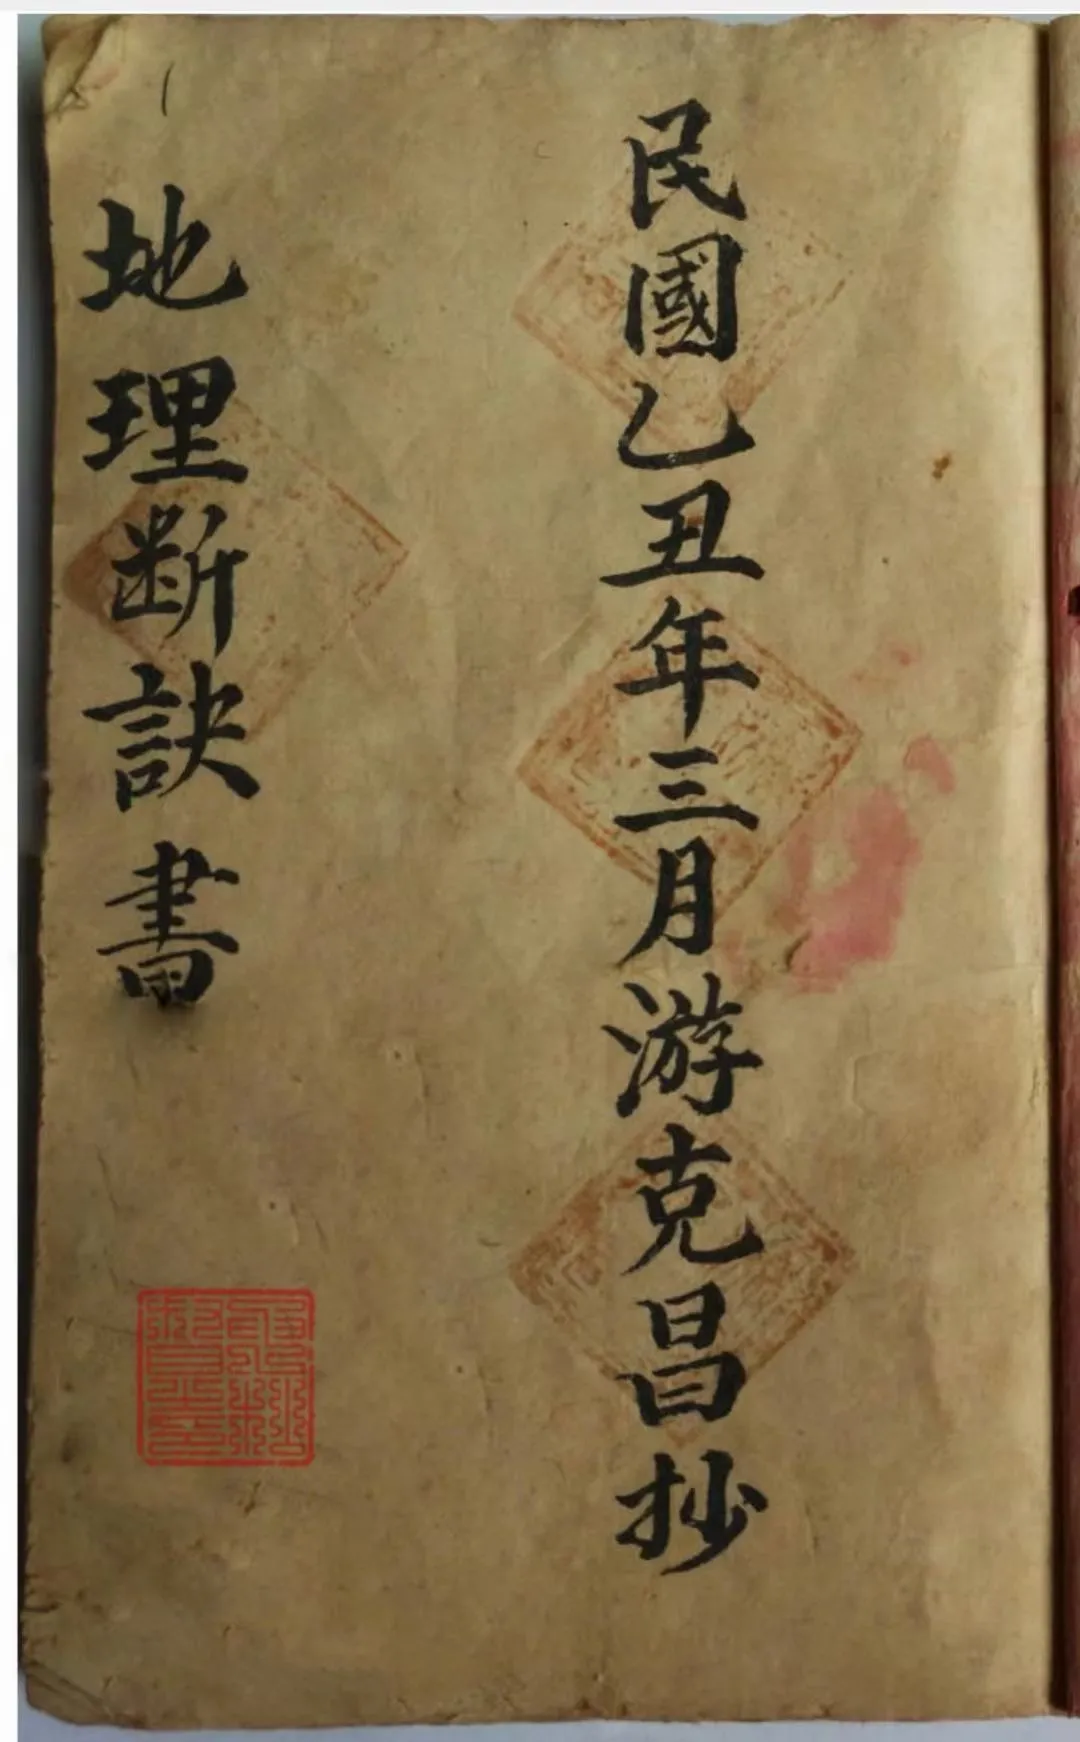 民國乙丑年三月游克昌抄
地理断訣書